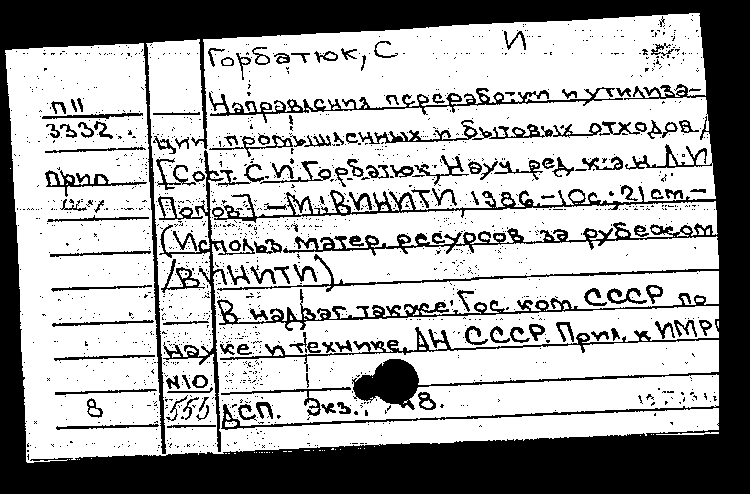 Горбатюк, С И
П11 Направления переработки и утилиза-
3332.. ции промышленных и бытовых отходов /
Прил [Сост. С И. Горбатюк, Науч. ред. к.э.н. Л.И
Попов.] – М.: ВИНИТИ, 1986. – 10с.; 21 см. –
(Использ. матер. ресурсов за рубежом
/ВИНИТИ).
В надзаг. также: Гос. ком. СССР по
науке и технике, АН СССР. Прил. к ИМРР
N10
8 555 ДСП. Экз. 48.